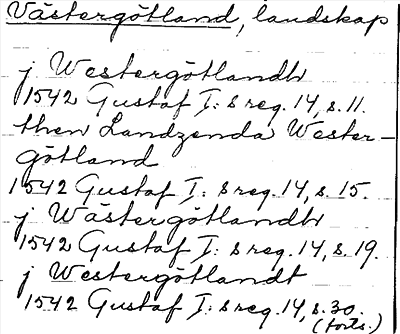 Västergötland, landskap
j Westergötlandh
1542 Gustaf I:s reg. 14, s. 11.
then Landzenda Wester-
götland
1542 Gustaf I:s reg. 14, s. 15.
j Wästergötlandh
1542 Gustaf I:s reg. 14, s. 19.
j Westergötlandt
1542 Gustaf I:s reg. 14, s. 30.
(forts.)